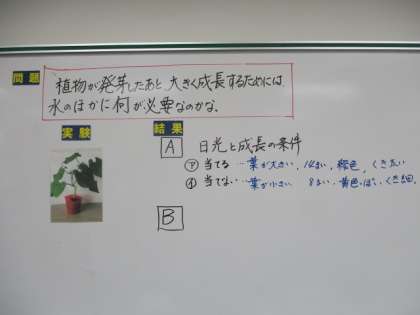 問題
植物が発芽したあと、大きく成長するためには、
水のほかに何が必要なのかな。
実験
結果
A 日光と成長の条件
㋐ 当てる…葉が大きい、14まい、緑色、くきたい
㋑ 当てない…葉が小さい 8まい、黄色っぽい、くき細
B